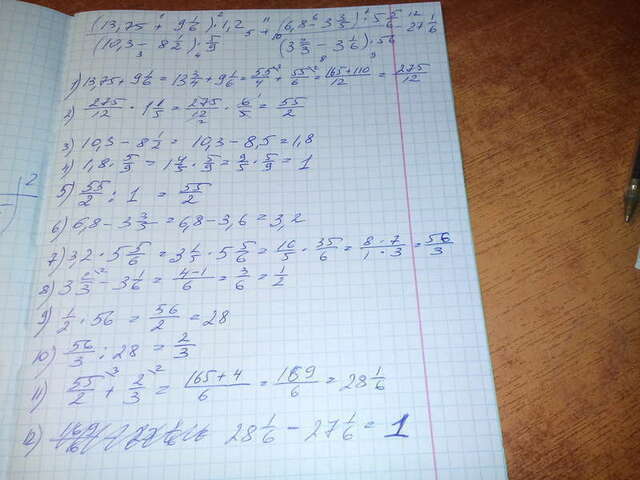 (13,75 + 9 1/6) · 1,2 / (10,3 - 8 1/2) · 5/9 + (6,8 - 3 3/5) · 5 5/6 / (3 2/3 - 3 1/6) · 56 - 27 1/6
1) 13,75 + 9 1/6 = 13 3/4 + 9 1/6 = 55/4 + 55/6 = 165+110/12 = 275/12
2) 275/12 · 1 1/5 = 275/12 · 6/5 = 55/2
3) 10,3 - 8 1/2 = 10,3 - 8,5 = 1,8
4) 1,8 · 5/9 = 1 4/5 · 5/9 = 9/5 · 5/9 = 1
5) 55/2 : 1 = 55/2
6) 6,8 - 3 3/5 = 6,8 - 3,6 = 3,2
7) 3,2 · 5 5/6 = 3 1/5 · 5 5/6 = 16/5 · 35/6 = 8 · 7/1 · 3 = 56/3
8) 3 2/3 - 3 1/6 = 4-1/6 = 3/6 = 1/2
9) 1/2 · 56 = 56/2 = 28
10) 56/3 : 28 = 2/3
11) 55/2 + 2/3 = 165+4/6 = 169/6 = 28 1/6
12) 28 1/6 - 27 1/6 = 1
2